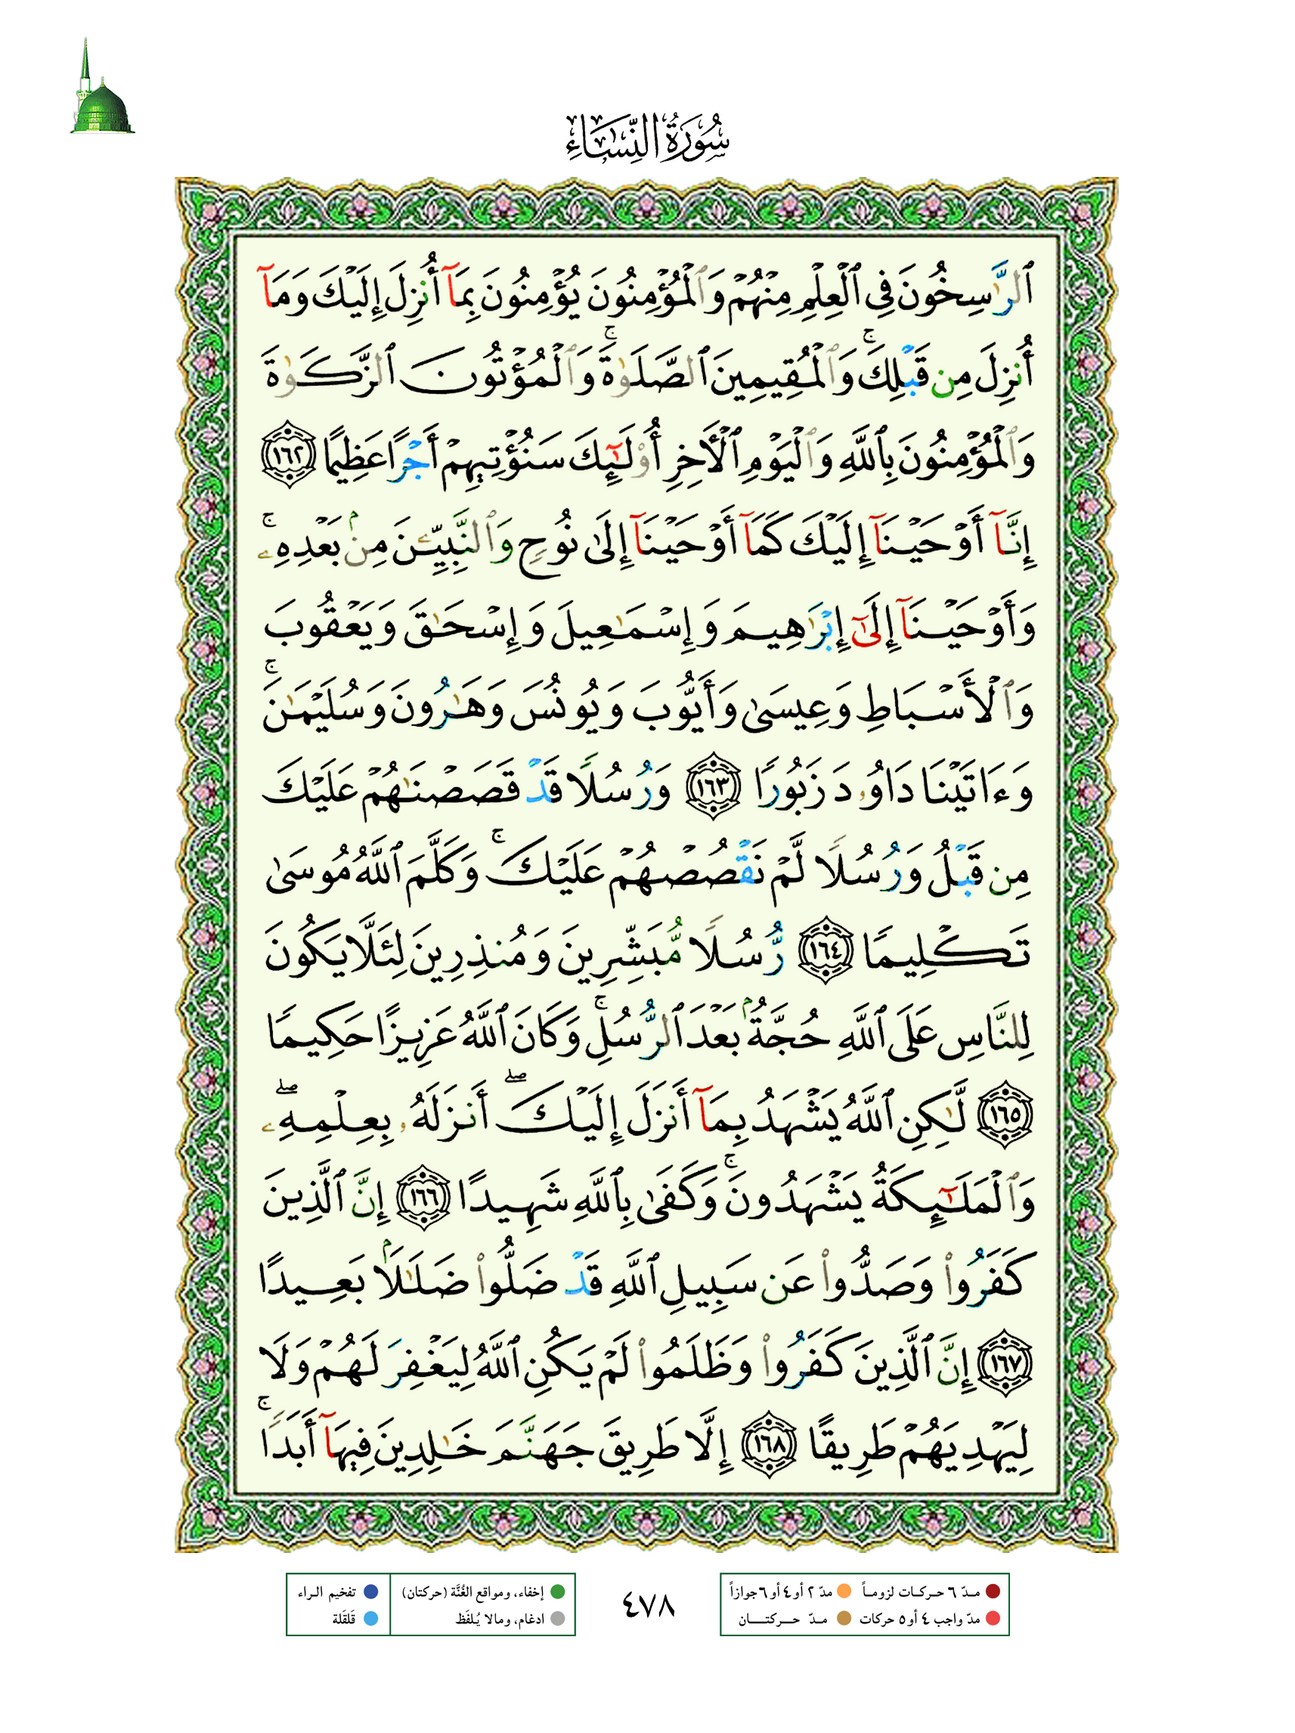 سُورَةُ النِّسَاءِ
ٱلرَّٰسِخُونَ فِى ٱلْعِلْمِ مِنْهُمْ وَٱلْمُؤْمِنُونَ يُؤْمِنُونَ بِمَآ أُنزِلَ إِلَيْكَ وَمَآ
أُنزِلَ مِن قَبْلِكَ ۚ وَٱلْمُقِيمِينَ ٱلصَّلَوٰةَ ۚ وَٱلْمُؤْتُونَ ٱلزَّكَوٰةَ
وَٱلْمُؤْمِنُونَ بِٱللَّهِ وَٱلْيَوْمِ ٱلْأَخِرِ أُو۟لَٰٓئِكَ سَنُؤْتِيهِمْ أَجْرًا عَظِيمًا ﴿١٦٢﴾
إِنَّآ أَوْحَيْنَآ إِلَيْكَ كَمَآ أَوْحَيْنَآ إِلَىٰ نُوحٍ وَٱلنَّبِيِّۦنَ مِنۢ بَعْدِهِۦ ۚ
وَأَوْحَيْنَآ إِلَىٰٓ إِبْرَٰهِيمَ وَإِسْمَٰعِيلَ وَإِسْحَٰقَ وَيَعْقُوبَ
وَٱلْأَسْبَاطِ وَعِيسَىٰ وَأَيُّوبَ وَيُونُسَ وَهَٰرُونَ وَسُلَيْمَٰنَ ۚ
وَءَاتَيْنَا دَاوُۥدَ زَبُورًا ﴿١٦٣﴾ وَرُسُلًا قَدْ قَصَصْنَٰهُمْ عَلَيْكَ
مِن قَبْلُ وَرُسُلًا لَّمْ نَقْصُصْهُمْ عَلَيْكَ ۚ وَكَلَّمَ ٱللَّهُ مُوسَىٰ
تَكْلِيمًا ﴿١٦٤﴾ رُّسُلًا مُّبَشِّرِينَ وَمُنذِرِينَ لِئَلَّا يَكُونَ
لِلنَّاسِ عَلَى ٱللَّهِ حُجَّةٌۢ بَعْدَ ٱلرُّسُلِ ۚ وَكَانَ ٱللَّهُ عَزِيزًا حَكِيمًا
﴿١٦٥﴾ لَّٰكِنِ ٱللَّهُ يَشْهَدُ بِمَآ أَنزَلَ إِلَيْكَ ۖ أَنزَلَهُۥ بِعِلْمِهِۦ ۖ
وَٱلْمَلَٰٓئِكَةُ يَشْهَدُونَ ۚ وَكَفَىٰ بِٱللَّهِ شَهِيدًا ﴿١٦٦﴾ إِنَّ ٱلَّذِينَ
كَفَرُوا۟ وَصَدُّوا۟ عَن سَبِيلِ ٱللَّهِ قَدْ ضَلُّوا۟ ضَلَٰلًۢا بَعِيدًا
﴿١٦٧﴾ إِنَّ ٱلَّذِينَ كَفَرُوا۟ وَظَلَمُوا۟ لَمْ يَكُنِ ٱللَّهُ لِيَغْفِرَ لَهُمْ وَلَا
لِيَهْدِيَهُمْ طَرِيقًا ﴿١٦٨﴾ إِلَّا طَرِيقَ جَهَنَّمَ خَٰلِدِينَ فِيهَآ أَبَدًا ۚ
مدّ ٦ حركات لزوماً مدّ ٢ أو ٤ أو ٦ جوازاً
مدّ واجب ٤ أو ٥ حركات مدّ حركتان
٤٧٨
إخفاء، ومواقع الغُنَّة (حركتان) تفخيم الراء
ادغام، ومالا يُلفَظ قَلقَلة